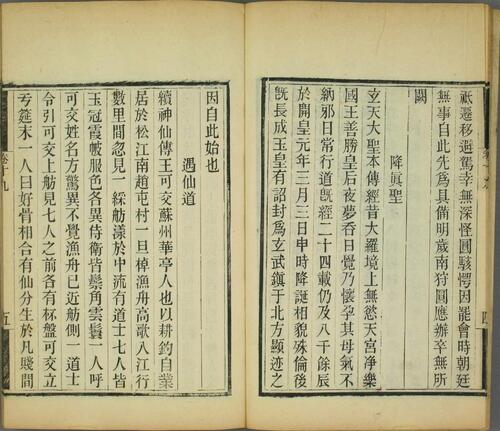 祗遷移遄駕幸無深怪圓駭愕因罷會時朝廷
無事自此先為具備明歲南狩圓應辦辛無所
闕
降眞聖
玄天大聖本傳經昔大羅境上無慾天宮淨樂
國王善勝皇后夜夢吞日覺乃懷孕其母氣不
納邪日常行道旣經二十四載仍及八千餘辰
於開皇元年三月三日申時降誕相貌殊倫後
旣長成玉皇有詔封為玄武鎭于北方顯迹之
因自此始也
遇仙道
續神仙傳王可交蘇州華亭人也以耕釣自業
居於松江南趙屯村一旦棹漁舟高歌入江行
數里間忽見一綵舫漾於中流有道士七人皆
玉冠霞帔服色各異侍衛皆鬃角雲鬟一人呼
可交姓名方驚異不覺漁舟已近舫側一道士
令引可交上舫見七人之前各有杯盤可交立
于筵末一人曰好骨相合有仙分生於凡賤間
卷十九
五